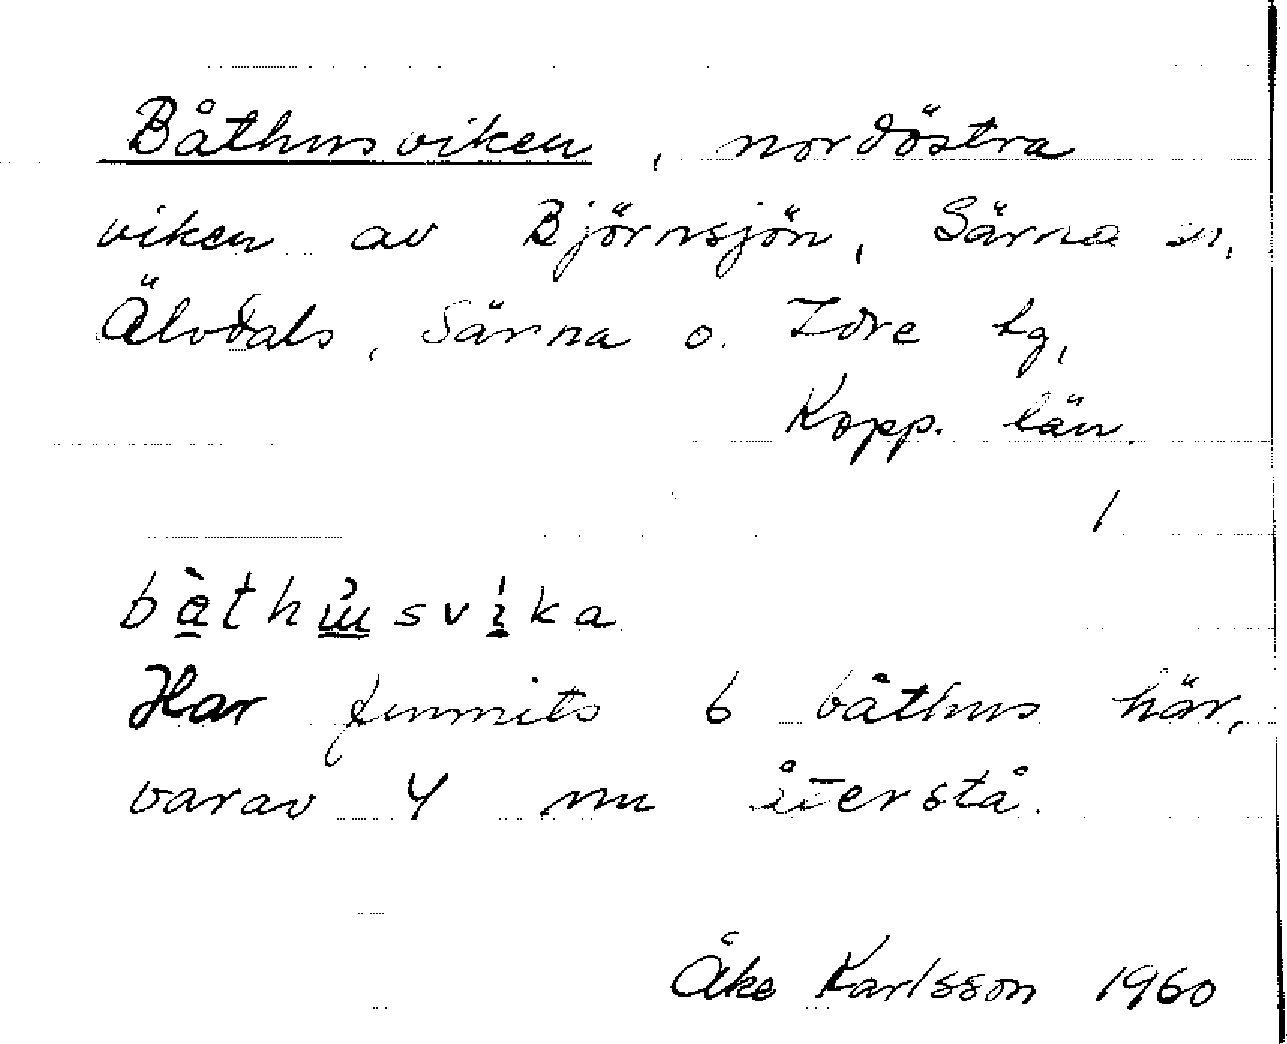 Båthusviken, nordöstra
viken av Björnsjön, Särna sn,
Älvdals, Särna o. Idre tg,
Kopp. län.
båthusvika
Har funnits 6 båthus här,
varav 4 nu återstå.
Åke Karlsson 1960